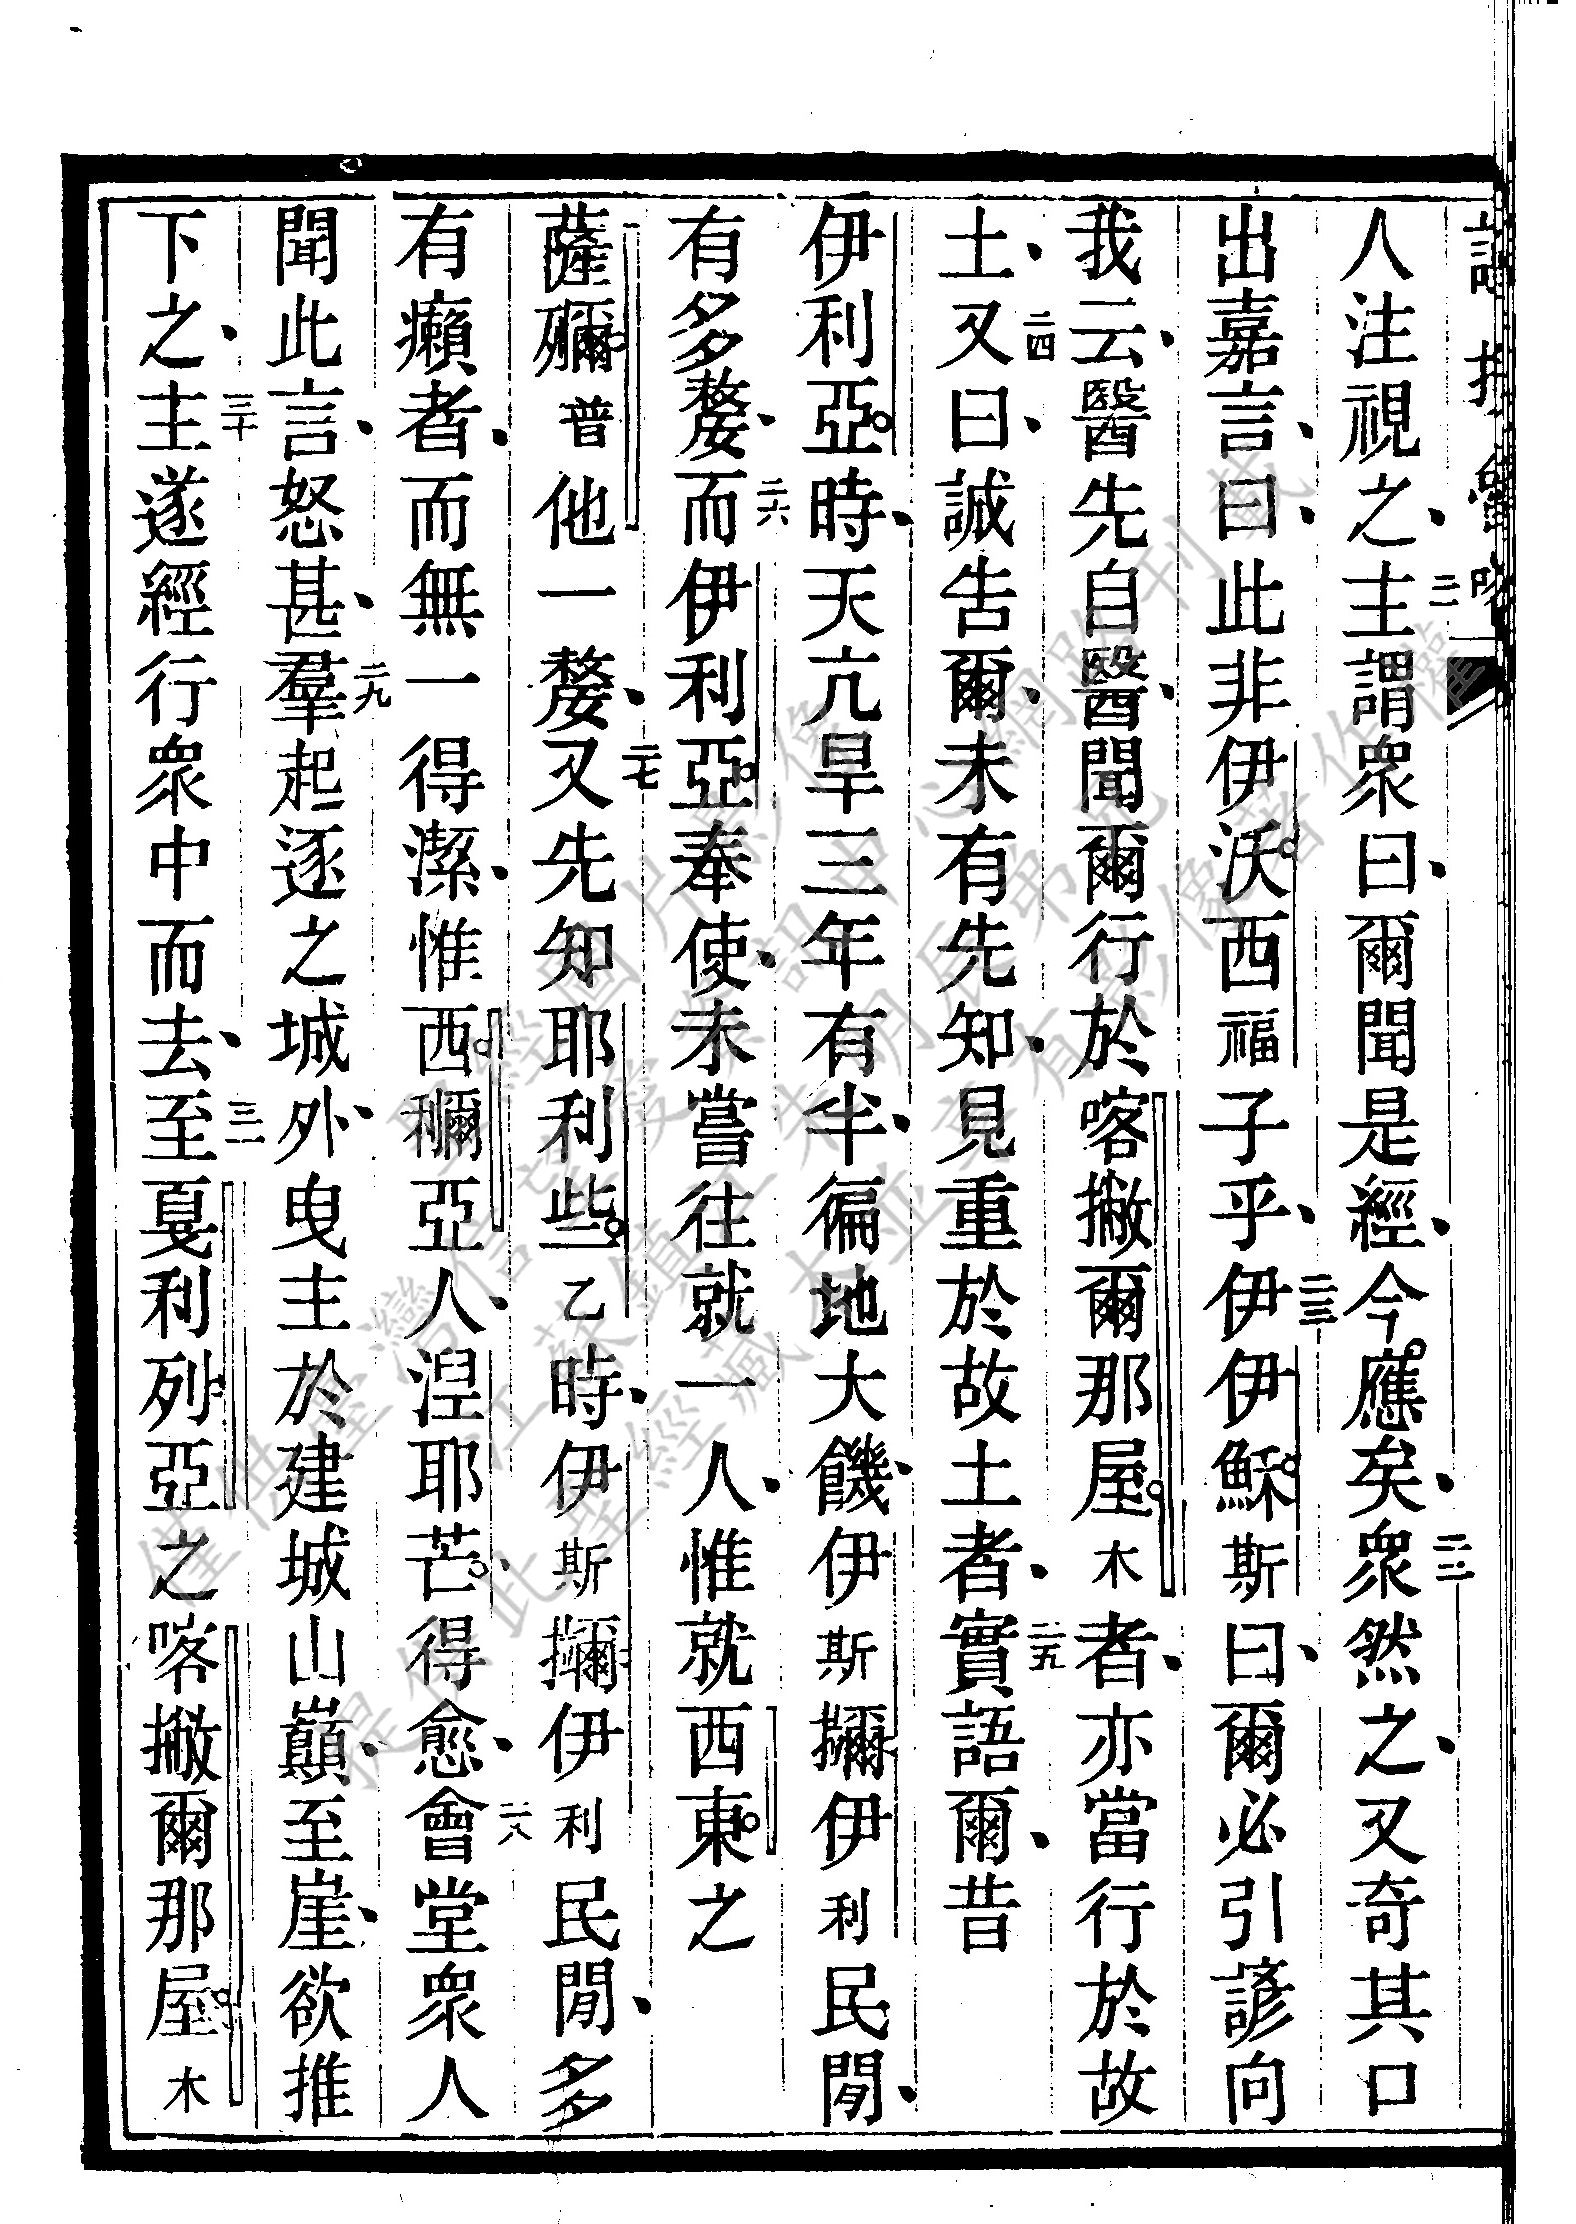 人注視之、二一主謂眾曰、爾聞是經、今應矣、二二眾然之、又奇其口
出嘉言、曰、此非伊沃西福子乎、二三伊伊穌斯曰、爾必引諺向
我云、醫先自醫、聞爾行於喀撇爾那屋木者、亦當行於故
土、二四又曰、誠吿爾、未有先知、見重於故土者、二五實語爾、昔
伊利亞時、天亢旱三年有半、徧地大饑、伊斯擟伊利民閒、
有多嫠、二六而伊利亞奉使、未嘗往就一人、惟就西東之
薩彌普他一嫠、二七又先知耶利些乙時、伊斯擟伊利民閒、多
有癩者、而無一得潔、惟西穪亞人、涅耶芒、得愈、二八會堂眾人
聞此言、怒甚、二九羣起逐之城外、曳主於建城山巔、至崖、欲推
下之、三十主遂經行眾中而去、三一至戛利列亞之喀撇爾那屋木